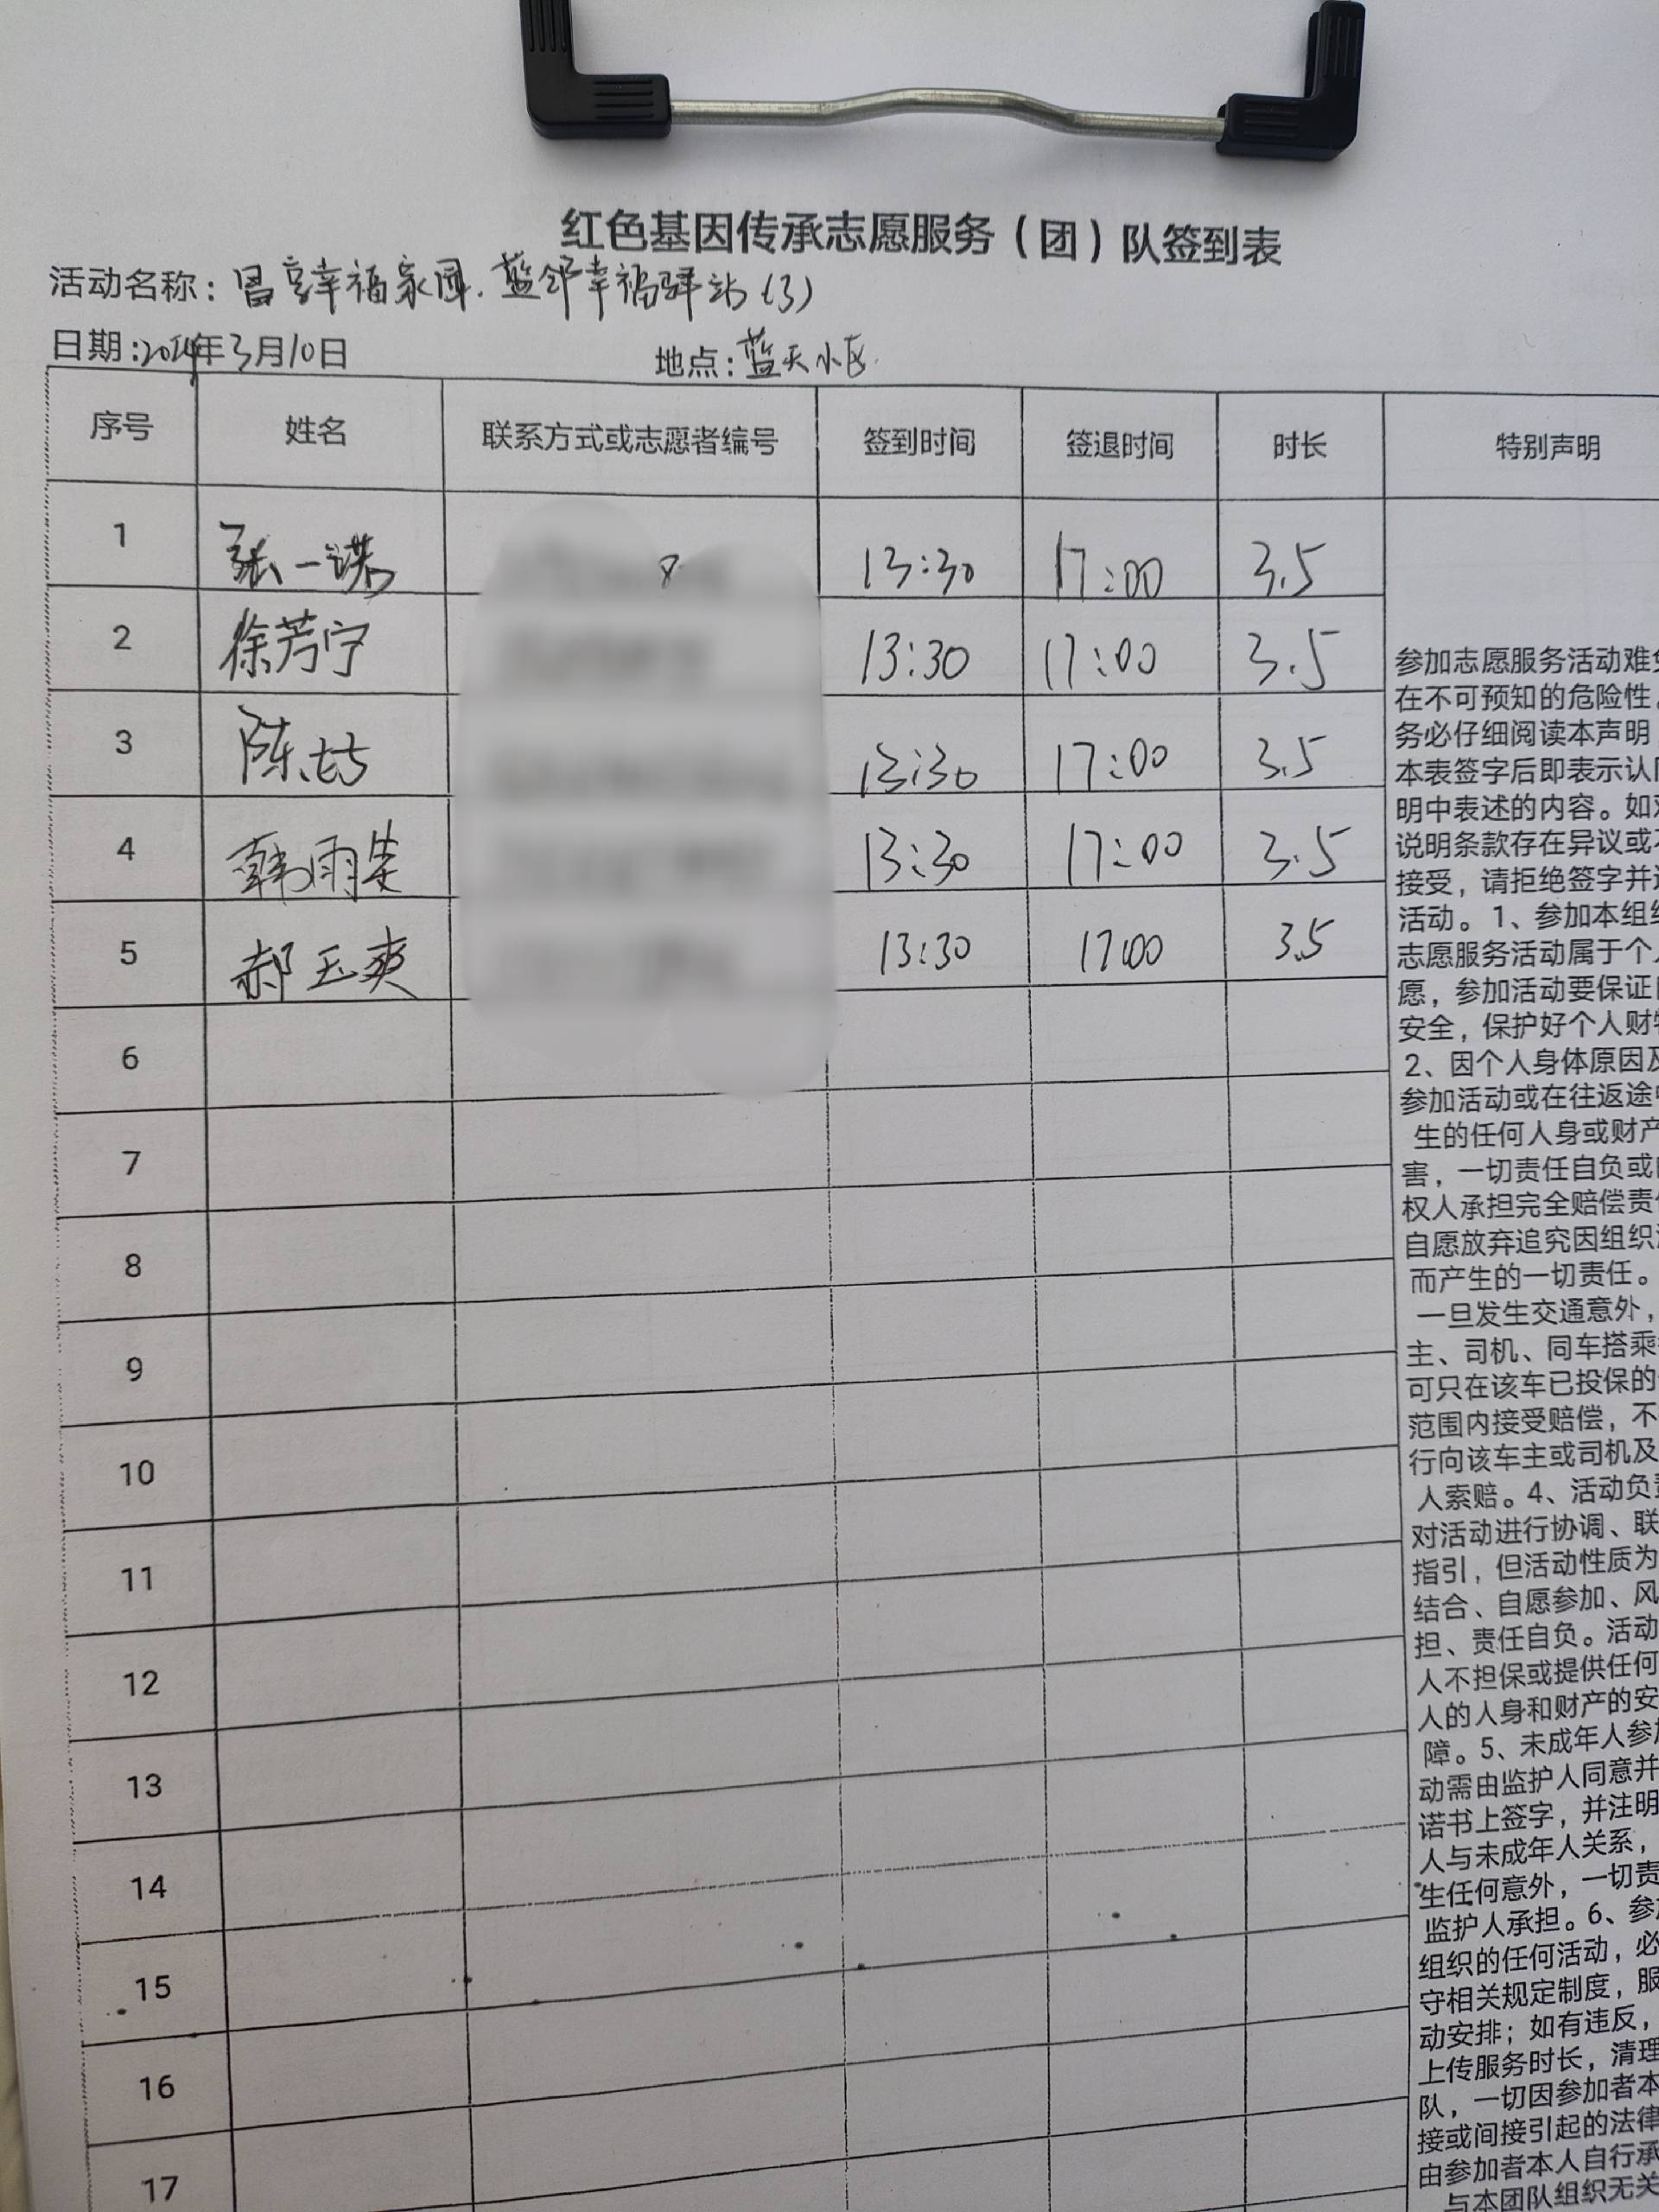 红色基因传承志愿服务（团）队签到表
活动名称：昌享幸福家园.蓝邻幸福驿站(3)
日期:2024年3月10日 地点:蓝天小区.
序号 姓名 联系方式或志愿者编号 签到时间 签退时间 时长 特别声明
1 张一诺 8 13:30 17:00 3.5
2 徐芳宁 13:30 17:00 3.5
3 陈 13:30 17:00 3.5
4 韩雨 13:30 17:00 3.5
5 郝玉爽 13:30 17:00 3.5
6
7
8
9
10
11
12
13
14
15
16
17
参加志愿服务活动难
在不可预知的危险性
务必仔细阅读本声明
本表签字后即表示认
明中表述的内容。如
说明条款存在异议或
接受，请拒绝签字并
活动。1、参加本组
志愿服务活动属于个
愿，参加活动要保证
安全，保护好个人财
2、因个人身体原因
参加活动或在往返途
生的任何人身或财产
害，一切责任自负或
权人承担完全赔偿责
自愿放弃追究因组织
而产生的一切责任。
一旦发生交通意外，
主、司机、同车搭乘
可只在该车已投保的
范围内接受赔偿，不
行向该车主或司机及
人索赔。4、活动负
对活动进行协调、联
指引，但活动性质为
结合、自愿参加、风
担、责任自负。活动
人不担保或提供任何
人的人身和财产的安
障。5、未成年人参
动需由监护人同意并
诺书上签字，并注明
人与未成年人关系，
生任何意外，一切责
监护人承担。6、参
组织的任何活动，必
守相关规定制度，服
动安排；如有违反，
上传服务时长，清理
队，一切因参加者本
接或间接引起的法律
由参加者本人自行承
与本团队组织无关